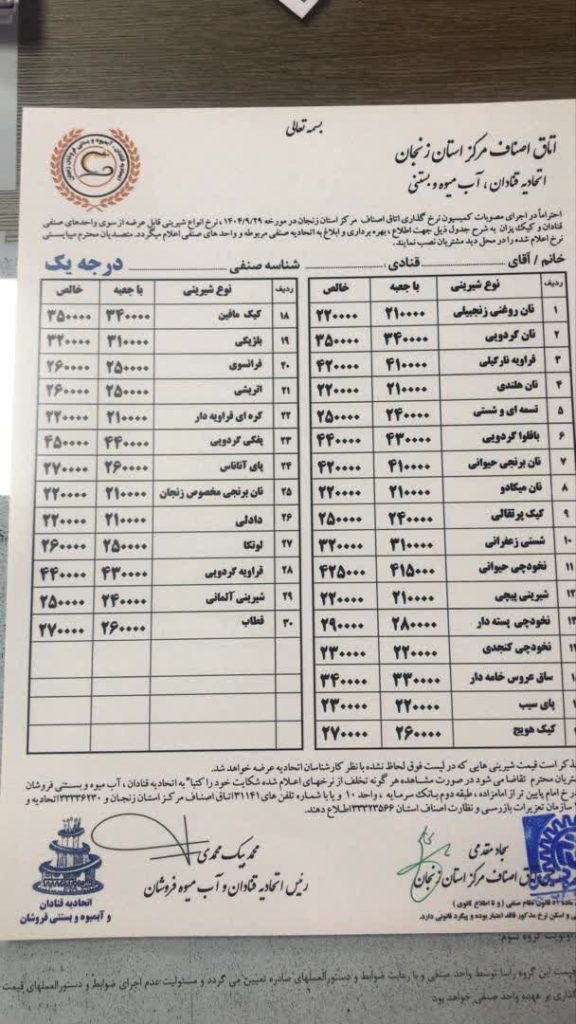 بسمه تعالی
اتاق اصناف مرکز استان زنجان
اتحادیه قنادان ، آب میوه و بستنی
احتراماً در اجرای مصوبات کمیسیون نرخ گذاری اتاق اصناف مرکز استان زنجان در مورخه ۱۴۰۴/۹/۲۹ ، نرخ انواع شیرینی قابل عرضه از سوی واحدهای صنفی
قنادان و کیک پزان به شرح جدول ذیل جهت اطلاع ، بهره برداری و ابلاغ به اتحادیه صنفی مربوطه و واحد های صنفی اعلام میگردد. متصدیان محترم میبایستی
نرخ اعلام شده را در محل دید مشتریان نصب نمایند.
خانم / آقای قنادی شناسه صنفی درجه یک
ردیف نوع شیرینی با جعبه خالص
۱ نان روغنی زنجبیلی ۲۱۰۰۰۰۰ ۲۲۰۰۰۰۰
۲ نان گردویی ۳۴۰۰۰۰۰ ۳۵۰۰۰۰۰
۳ قراویه نارگیلی ۴۱۰۰۰۰۰ ۴۲۰۰۰۰۰
۴ نان هلندی ۲۱۰۰۰۰۰ ۲۲۰۰۰۰۰
۵ تسمه ای و شستی ۲۴۰۰۰۰۰ ۲۵۰۰۰۰۰
۶ باقلوا گردویی ۴۳۰۰۰۰۰ ۴۴۰۰۰۰۰
۷ نان برنجی حیوانی ۴۱۰۰۰۰۰ ۴۲۰۰۰۰۰
۸ نان میکادو ۲۱۰۰۰۰۰ ۲۲۰۰۰۰۰
۹ کیک پرتقالی ۲۴۰۰۰۰۰ ۲۵۰۰۰۰۰
۱۰ شستی زعفرانی ۳۱۰۰۰۰۰ ۳۲۰۰۰۰۰
۱۱ نخودچی حیوانی ۴۱۵۰۰۰۰ ۴۲۵۰۰۰۰
۱۲ شیرینی پیچی ۲۱۰۰۰۰۰ ۲۲۰۰۰۰۰
نخودچی پسته دار ۲۸۰۰۰۰۰ ۲۹۰۰۰۰۰
نخودچی کنجدی ۲۲۰۰۰۰۰ ۲۳۰۰۰۰۰
ساق عروس خامه دار ۳۳۰۰۰۰۰ ۳۴۰۰۰۰۰
پای سیب ۲۲۰۰۰۰۰ ۲۳۰۰۰۰۰
کیک هویج ۲۶۰۰۰۰۰ ۲۷۰۰۰۰۰
ردیف نوع شیرینی با جعبه خالص
۱۸ کیک مافین ۳۴۰۰۰۰۰ ۳۵۰۰۰۰۰
۱۹ بلژیکی ۳۱۰۰۰۰۰ ۳۲۰۰۰۰۰
۲۰ فرانسوی ۲۵۰۰۰۰۰ ۲۶۰۰۰۰۰
۲۱ اتریشی ۲۵۰۰۰۰۰ ۲۶۰۰۰۰۰
۲۲ کره ای قراویه دار ۲۱۰۰۰۰۰ ۲۲۰۰۰۰۰
۲۳ پفکی گردویی ۴۴۰۰۰۰۰ ۴۵۰۰۰۰۰
۲۴ پای آناناس ۲۶۰۰۰۰۰ ۲۷۰۰۰۰۰
۲۵ نان برنجی مخصوص زنجان ۲۱۰۰۰۰۰ ۲۲۰۰۰۰۰
۲۶ دادلی ۲۱۰۰۰۰۰ ۲۲۰۰۰۰۰
۲۷ لوتکا ۲۵۰۰۰۰۰ ۲۶۰۰۰۰۰
۲۸ قراویه گردویی ۴۳۰۰۰۰۰ ۴۴۰۰۰۰۰
۲۹ شیرینی آلمانی ۲۴۰۰۰۰۰ ۲۵۰۰۰۰۰
۳۰ قطاب ۲۶۰۰۰۰۰ ۲۷۰۰۰۰۰
ذکر است قیمت شیرینی هایی که در لیست فوق لحاظ نشده با نظر کارشناسان اتحادیه عرضه خواهد شد.
شتریان محترم تقاضا می شود در صورت مشاهده هر گونه تخلف از نرخهای اعلام شده شکایت خود را کتباً به اتحادیه قنادان ، آب میوه و بستنی فروشان
خ امام پایین تر از امامزاده ، طبقه دوم بانک سرمایه ، واحد ۱۰ و یا با شماره تلفن های ۳۱۱۴۱ اتاق اصناف مرکز استان زنجان و ۳۳۳۳۶۲۳۰ اتحادیه و
سازمان تعزیرات بازرسی و نظارت اصناف استان ۳۳۳۲۳۵۶۶ اطلاع دهند.
سجاد مقدمی
اتاق اصناف مرکز استان زنجان
محمد بیک محمدی
رئیس اتحادیه قنادان و آب میوه فروشان
اتحادیه قنادان
و آبمیوه و بستنی فروشان
قانون نظام صنفی ( و تا اطلاع ثانوی )
و اسکن نرخ مذکور فاقد اعتبار بوده و پیگرد قانونی دارد.
گروه سوم:
قیمت این گروه راسا توسط واحد صنفی و با رعایت ضوابط و دستورالعملهای صادره تعیین می گردد و مسئولیت عدم اجرای ضوابط و دستورالعملهای قیمت
گذاری بر عهده واحد صنفی خواهد بود